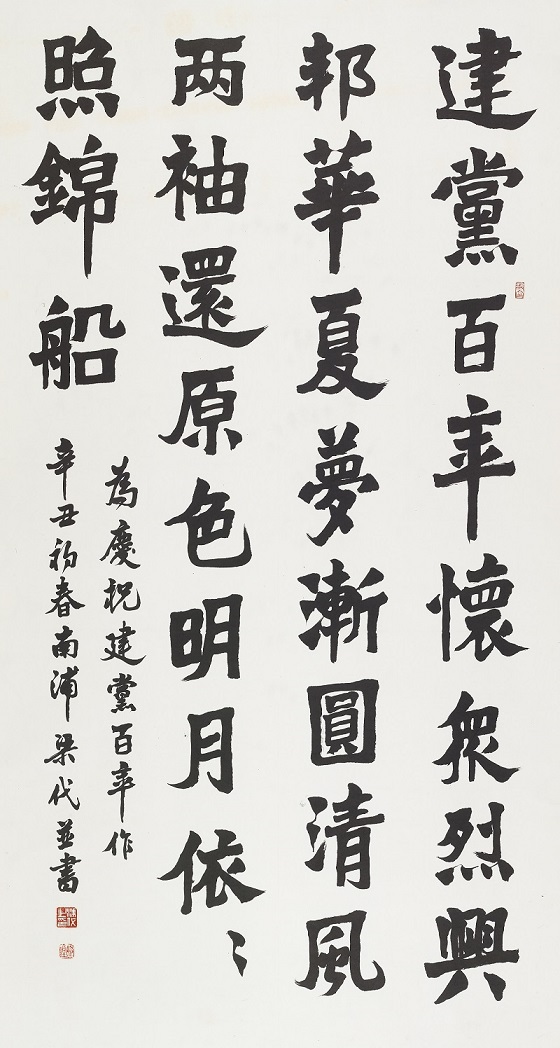 建黨百年懷衆烈興
邦華夏夢漸圓清風
两袖還原色明月依〻
照錦船
為慶祝建黨百年作
辛丑初春南浦梁代並書